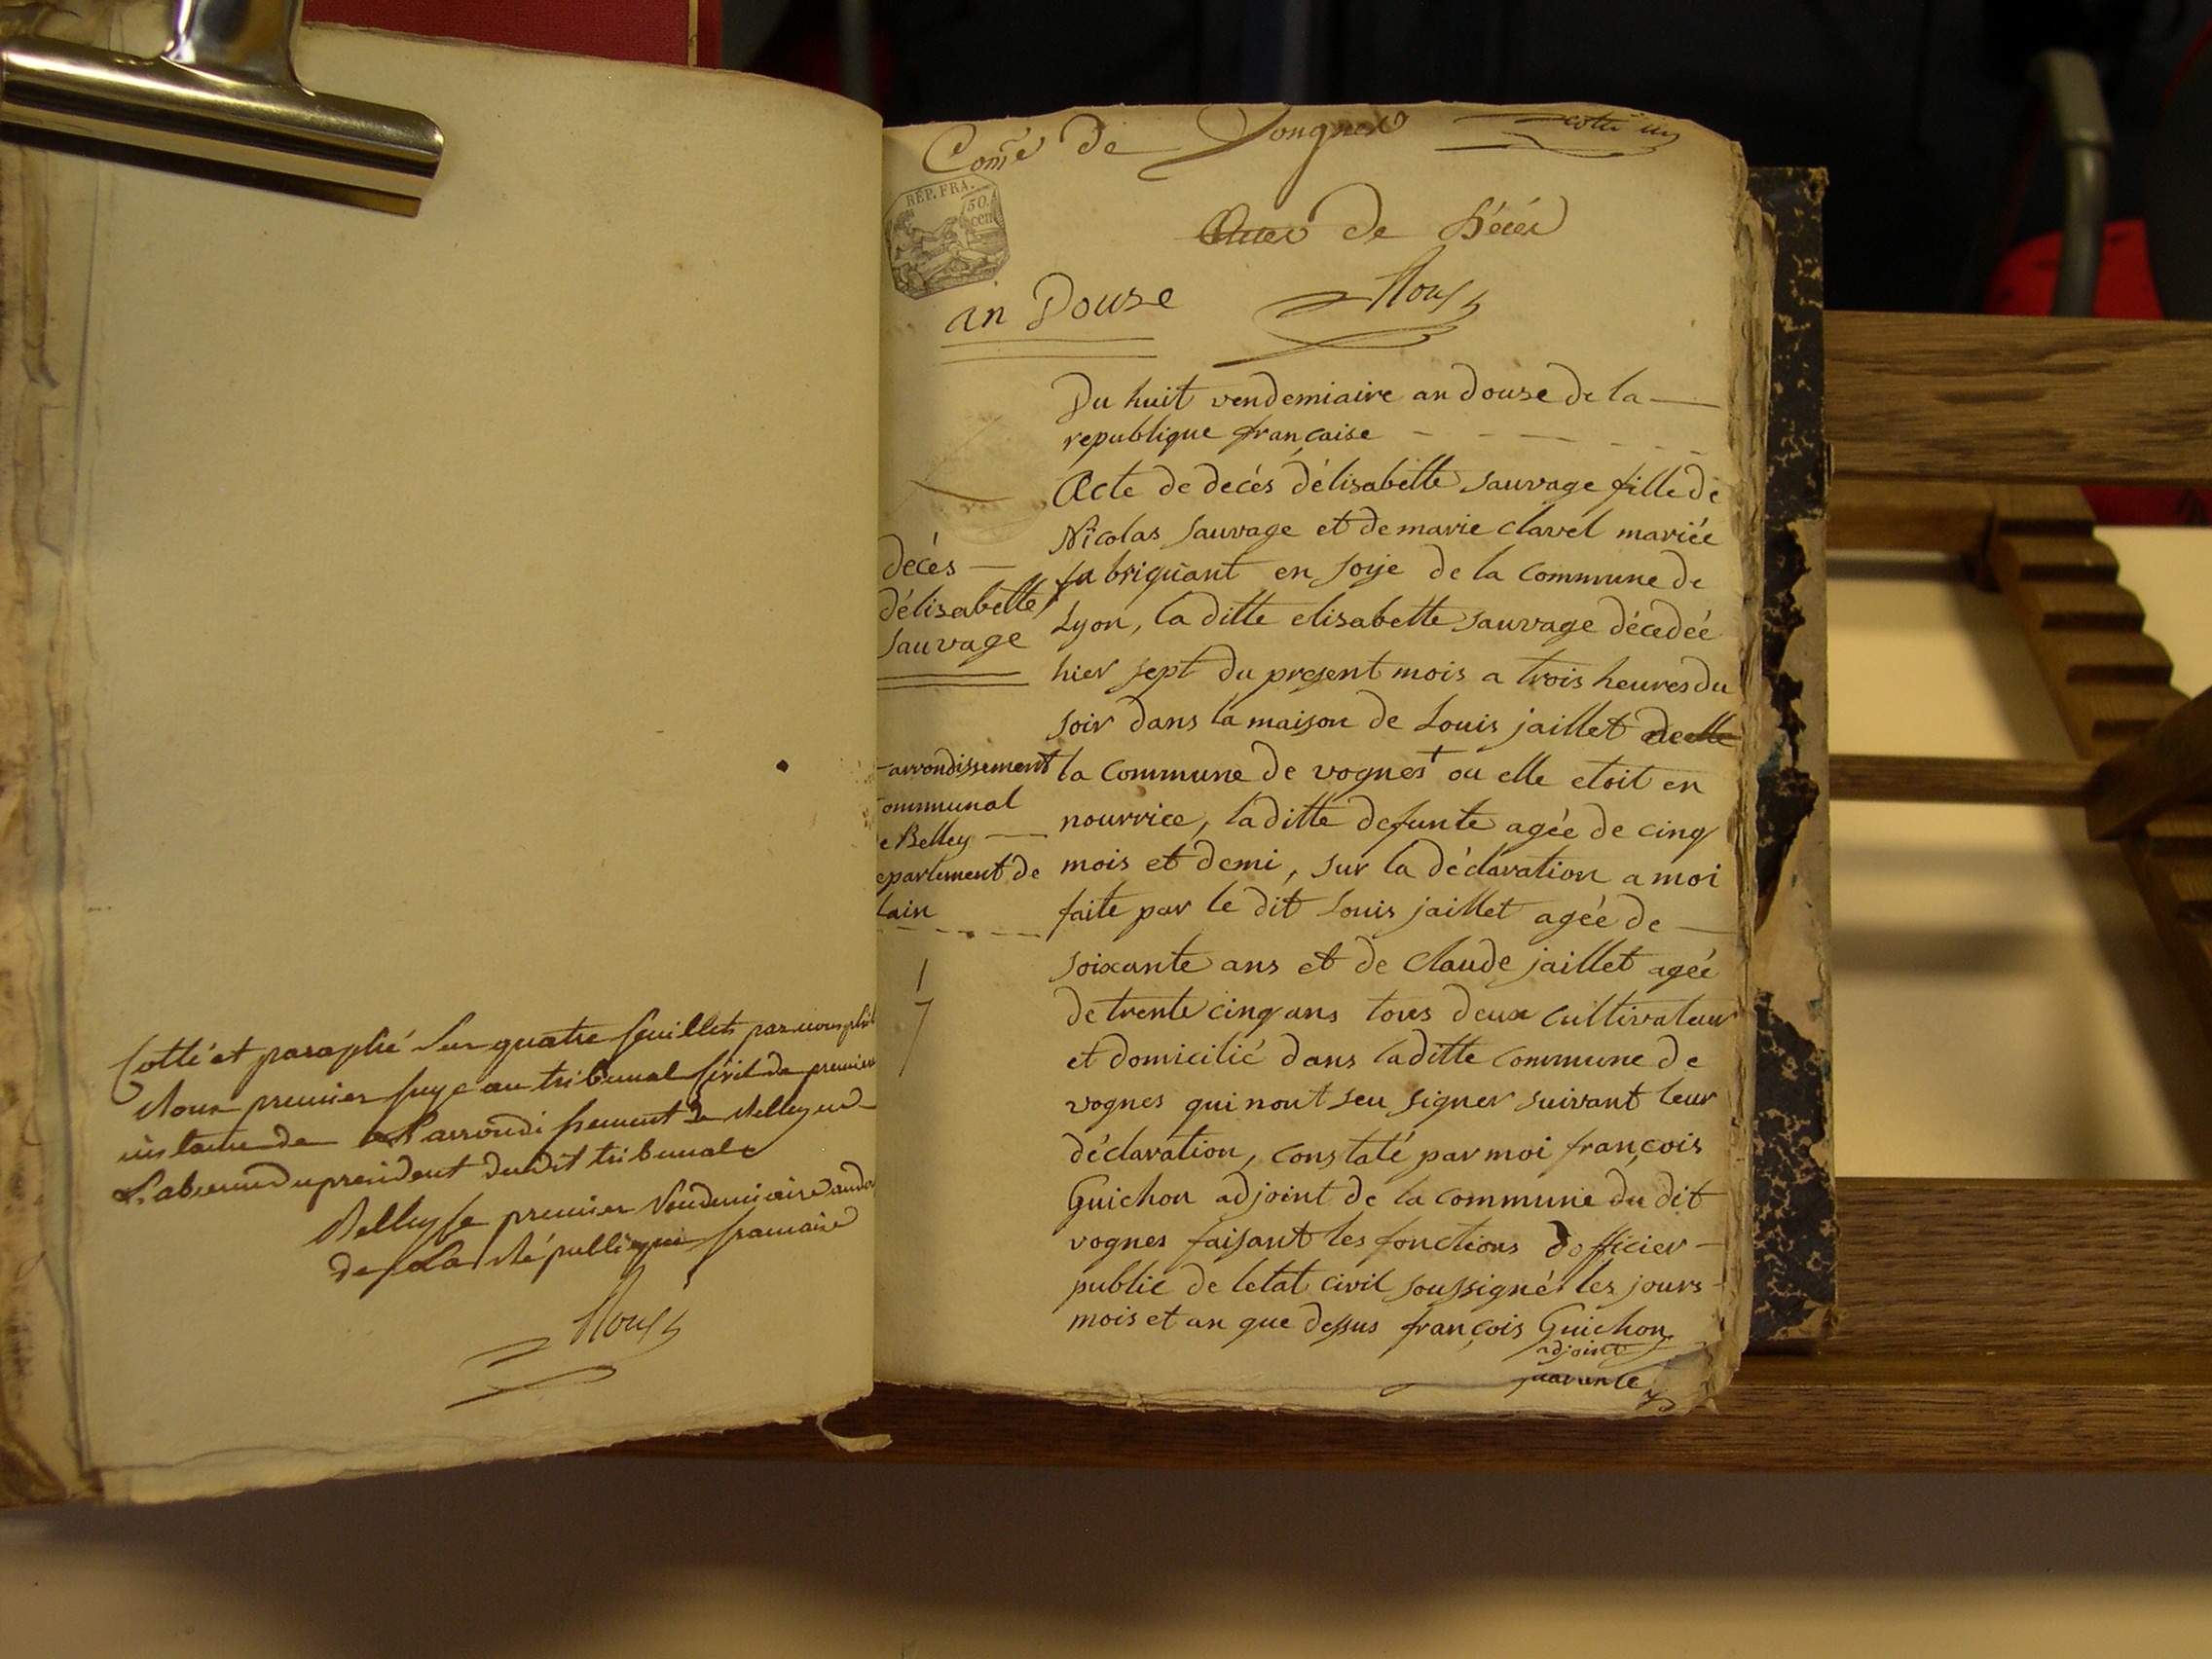 Cotté et paraphé Sur quatre feuillets par nous
premier juge au tribunal Civil de premier
instance de L'arrondissement de Belley en
L'absence du president dudit tribunal
Belley le premier Vendemiaire an do
de La République francaise
Comᵉ de Vongnes
cotté un
REP. FRA.
50.
cen
Actes de Décés
an Douse
Du huit vendemiaire an douse de la
republique française
Acte de decés d'élisabette sauvage fille de
Nicolas sauvage et de marie clavel mariée
fabriquant en soye de la commune de
Lyon, la ditte elisabette sauvage décedée
hier sept du present mois a trois heures du
soir dans la maison de Louis jaillet
la commune de vognes + ou elle etoit en
nourrice, laditte defunte agée de cinq
mois et demi, sur la déclaration a moi
faite par le dit Louis jaillet agée de
soixante ans et de Claude jaillet agée
de trente cinq ans tous deux cultivateur
et domicilié dans laditte commune de
vognes qui nont seu signer suivant leur
déclaration, constaté par moi françois
Guichon adjoint de la commune du dit
vognes faisant les fonctions dofficier
public de letat civil soussigné les jours
mois et an que dessus françois Guichon
adjoint
quarente
décés
d'élisabette
sauvage
arrondissement
ommunal
e Belley
epartement de
lain
1
7